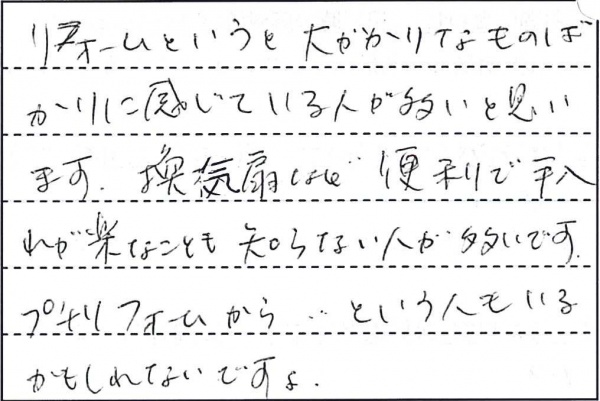 リフォームというと大がかりなものば
かりに感じている人が多いと思い
ます。換気扇など便利で手入
れが楽なことも知らない人が多いです。
プチリフォームから…という人もいる
かもしれないですよ.